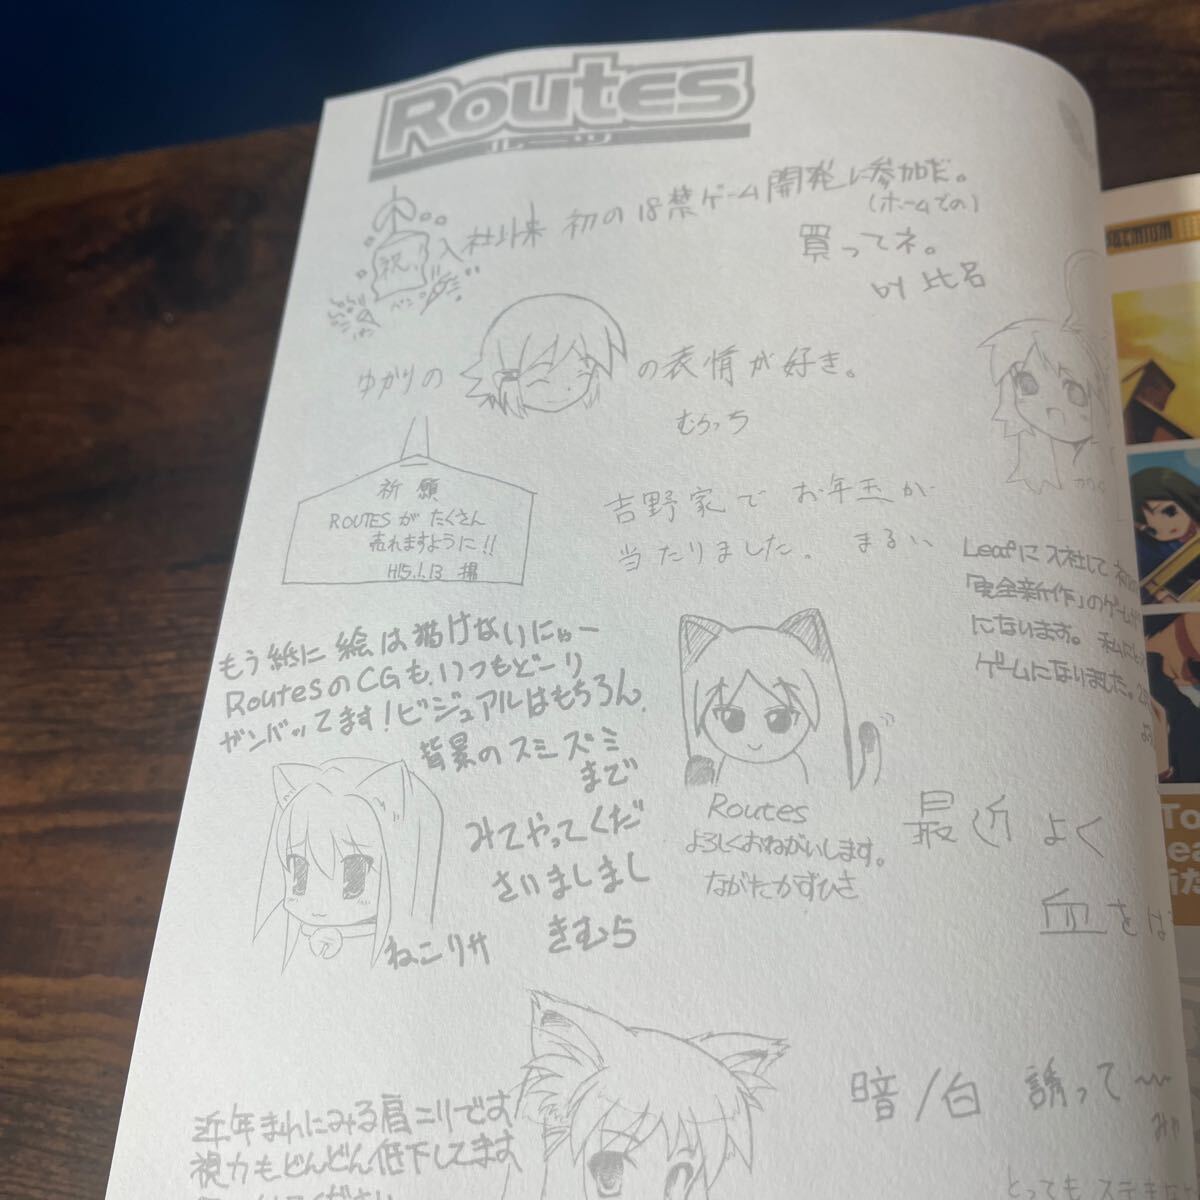 Routes
ルーツ
祝
入社以来 初の18禁ゲーム開発に参加だ。
(ホームでの)
買ってネ。
by 比名
ゆかりの の表情が好き。
むらっち
祈願
ROUTESが たくさん
売れますように!!
H15.1.13 揚
吉野家で お年玉が
当たりました。 まるい
Leafに入社して
「完全新作」のゲーム
になります。 私に
ゲームになりました。
もう紙に 絵は描けないにゅー
RoutesのCGも、いつもどーり
ガンバッてます!ビジュアルはもちろん、
背景のスミズミ
まで
みてやってくだ
さいましまし
きむら
ねこリサ
Routes
よろしくおねがいします。
ながたかずひさ
最近 よく
血をは
暗/白 誘って〜
近年まれにみる肩コリです
視力もどんどん低下してます
とっても
PREMIUM
To